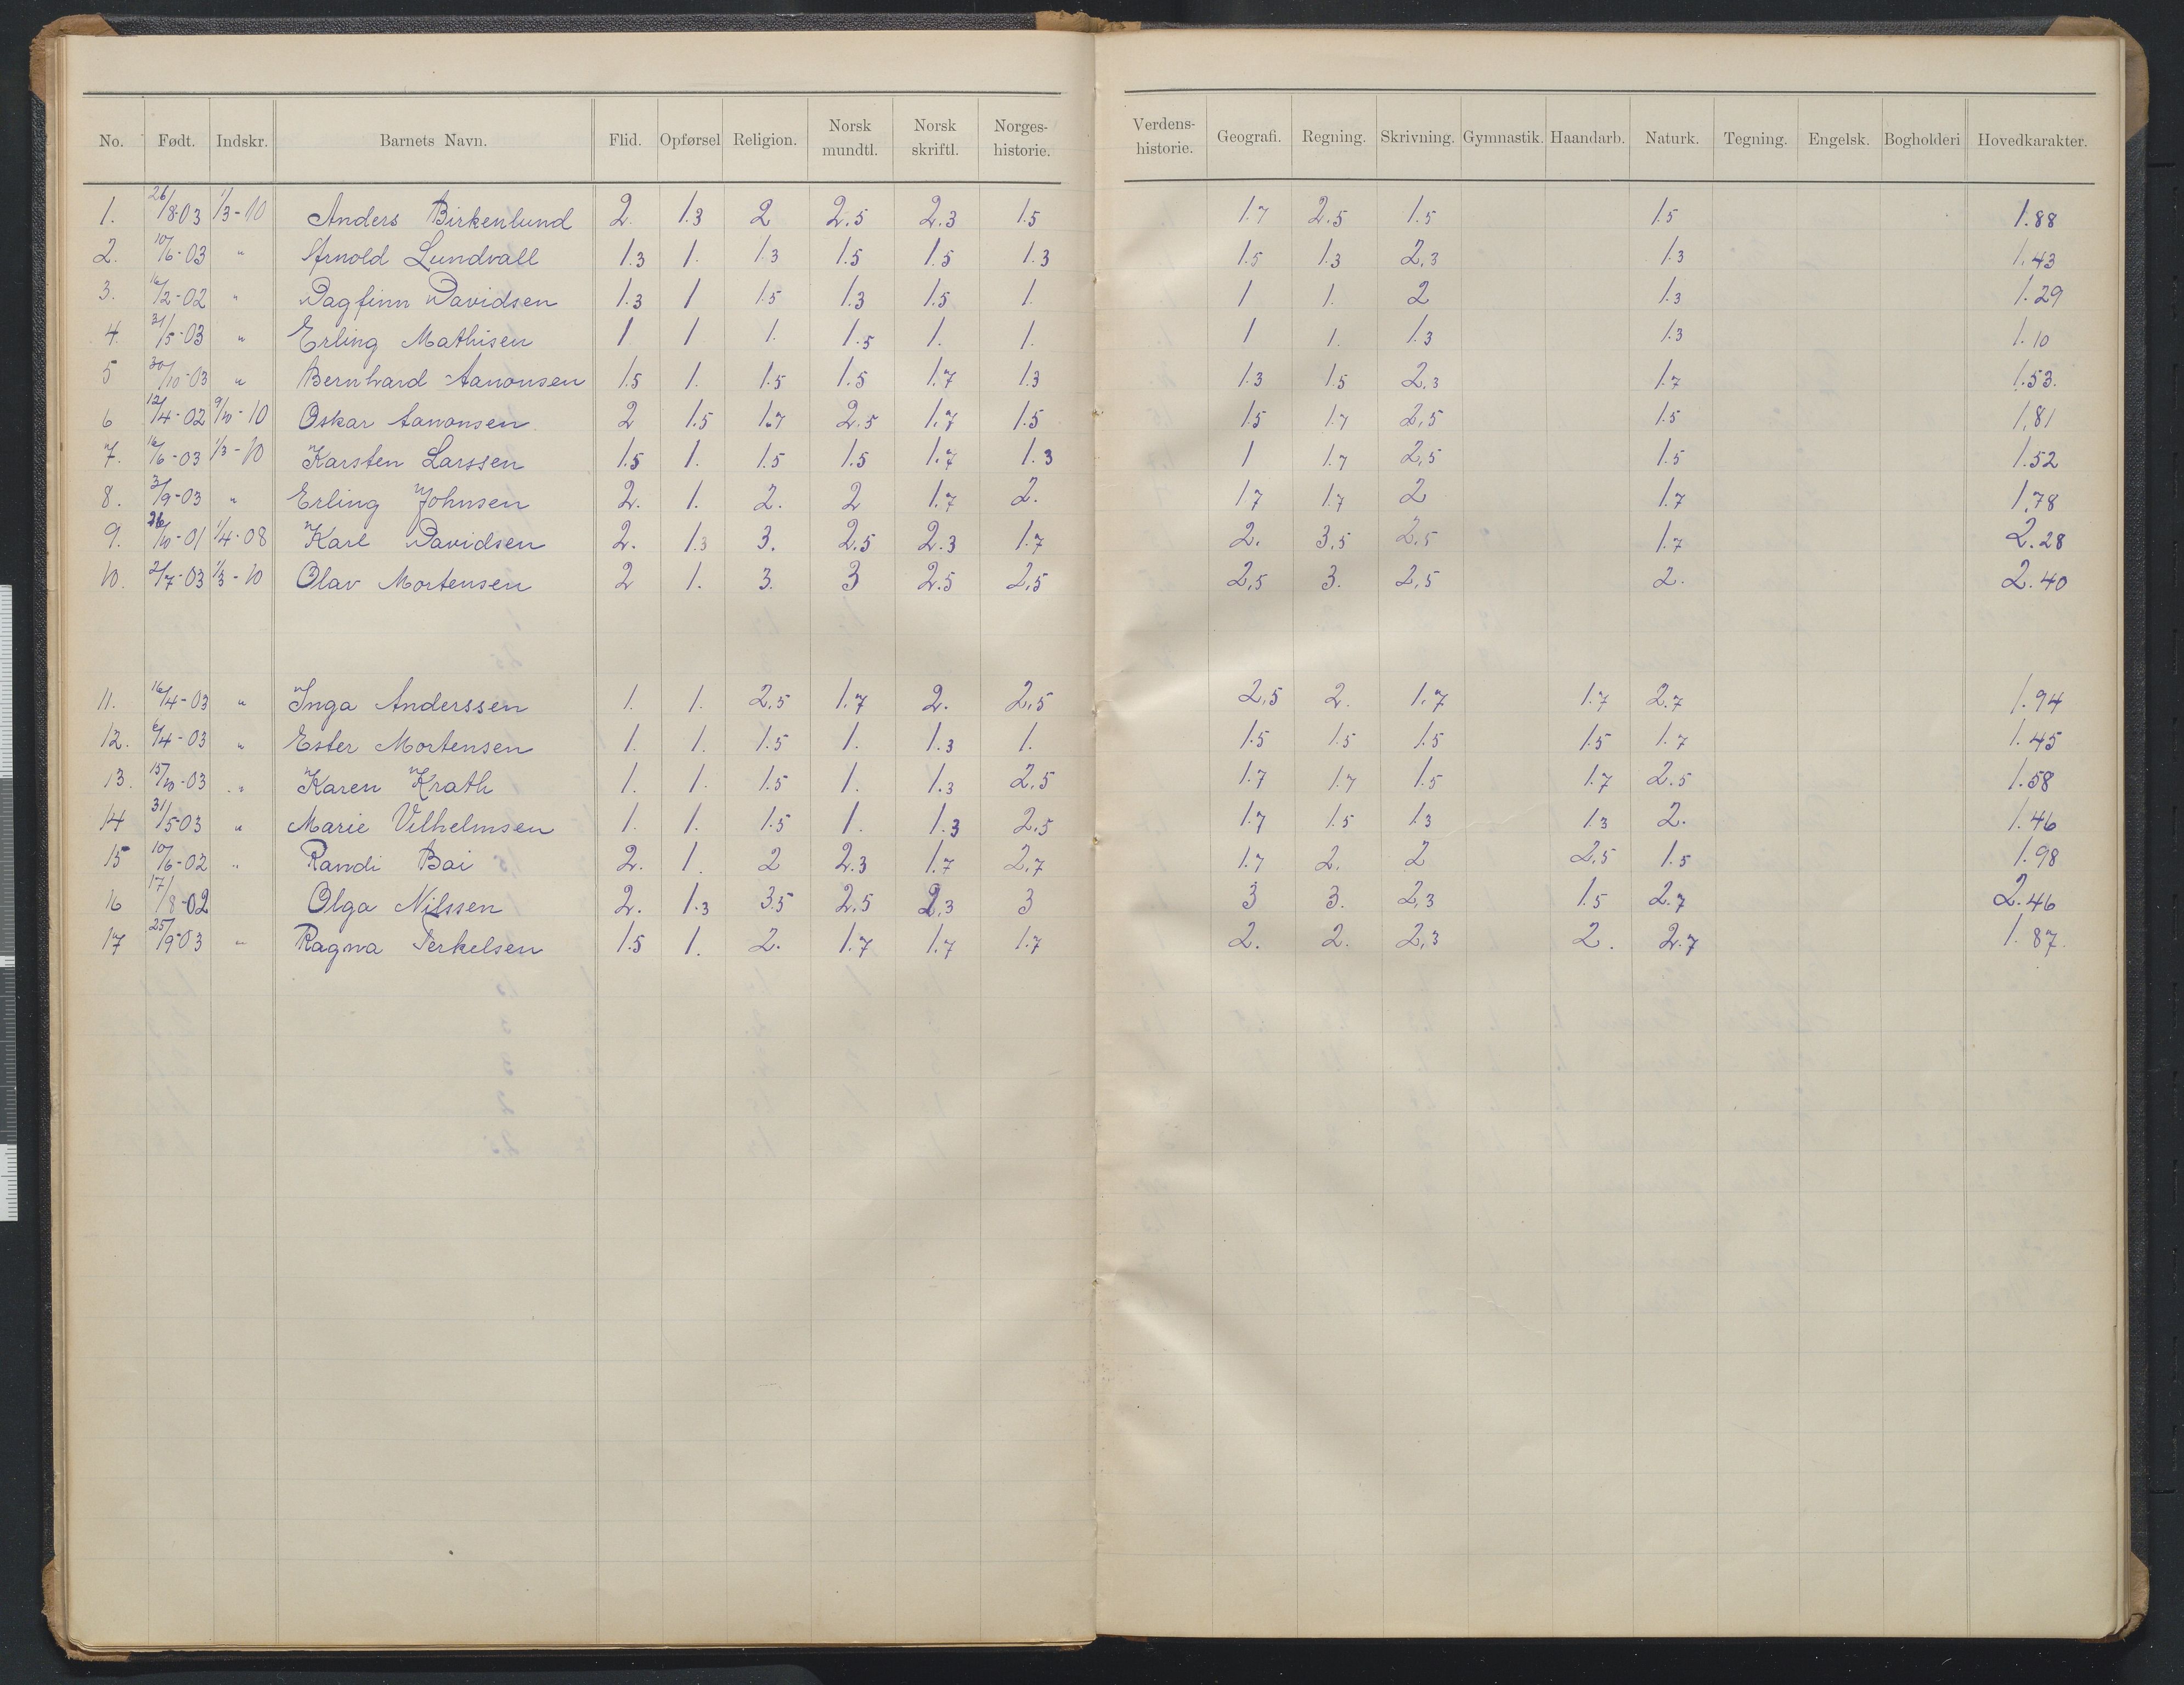 No. Født. Indskr. Barnets Navn. Flid. Opførsel Religion. Norsk mundtl. Norsk skriftl. Norges-historie. Verdens-historie. Geografi. Regning. Skrivning. Gymnastik. Haandarb. Naturk. Tegning. Engelsk. Bogholderi Hovedkarakter.
1. 26/8-03 1/3-10 Anders Birkenlund 2. 1.3 2 2.5 2.3 1.5 1.7 2.5 1.5 1.5 1.88
2. 10/6-03 " Arnold Lundvall 1.3 1. 1.3 1.5 1.5 1.3 1.5 1.3 2,3 1.3 1.43
3. 16/2-02 " Dagfinn Davidsen 1.3 1 1.5 1.3 1.5 1. 1 1. 2 1.3 1.29
4. 31/5-03 " Erling Mathisen 1 1 1. 1.5 1. 1. 1 1. 1.3 1.3 1.10
5 30/10-03 " Bernhard Aanonsen 1.5 1. 1.5 1.5 1.7 1.3 1.3 1.5 2,3 1.7 1.53.
6 12/4-02 9/10-10 Oskar Aanonsen. 2 1.5 1.7 2.5 1.7 1.5 1.5 1.7 2,5 1.5 1,81
7. 16/6-03 1/3-10 Karsten Larssen 1.5 1. 1.5 1.5 1.7 1.3 1 1.7 2,5 1.5 1.52
8. 3/9-03 " Erling Johnsen 2. 1. 2. 2 1.7 2. 1.7 1.7 2 1.7 1.78
9. 26/10-01 1/4-08 Karl Davidsen 2. 1.3 3. 2.5 2.3 1.7 2. 3,5 2.5 1.7 2.28
10. 2/7-03 1/3-10 Olav Mortensen 2 1. 3. 3 2.5 2,5 2,5 3. 2,5 2. 2.40
11. 16/4-03 " Inga Anderssen 1. 1. 2,5 1.7 2. 2,5 2,5 2. 1.7 1.7 2.7 1.94
12. 6/4-03 " Ester Mortensen 1. 1. 1.5 1. 1.3 1. 1.5 1.5 1.5 1.5 1.7 1.45
13. 15/10-03 " Karen Krath 1. 1. 1.5 1. 1.3 2,5 1.7 1.7 1.5 1.7 2.5 1.58
14 31/5-03 " Marie Vilhelmsen 1. 1. 1.5 1. 1.3 2,5 1.7 1.5 1.3 1.3 2. 1.46
15 10/6-02 " Randi Boi 2. 1. 2 2.3 1.7 2,7 1.7 2. 2 2,5 1.5 1.98
16 17/8-02 Olga Nilssen 2. 1.3 3.5 2.5 2,3 3 3 3. 2,3 1.5 2.7 2.46
17 25/9-03 " Ragna Terkelsen 1.5 1. 2. 1.7 1.7 1.7 2. 2. 2,3 2. 2.7 1.87.